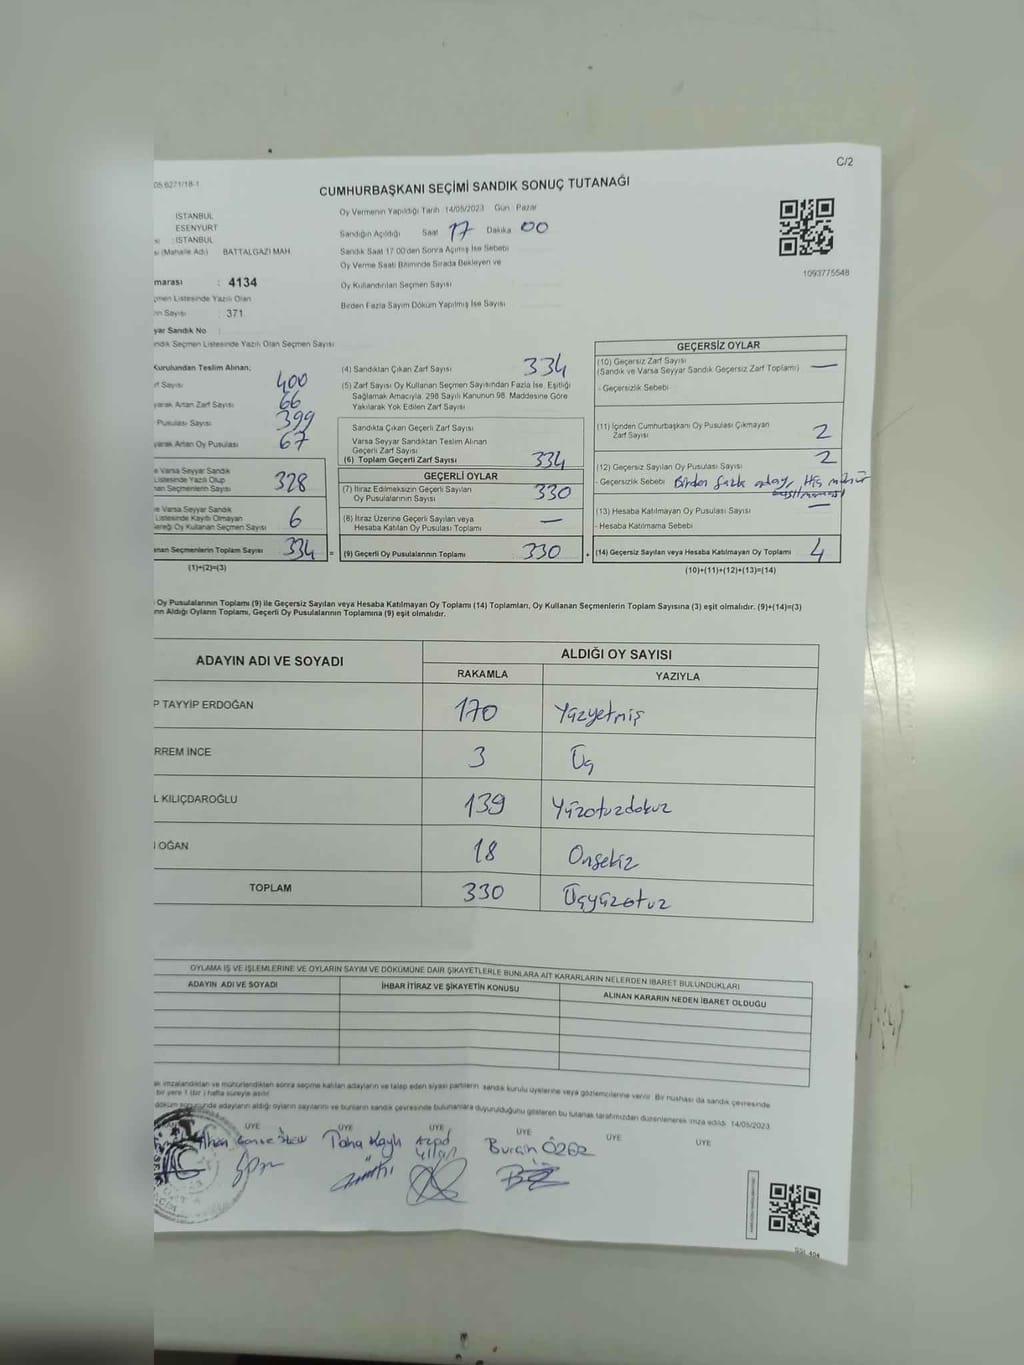 C/2
05.6271/18-1
CUMHURBAŞKANI SEÇİMİ SANDIK SONUÇ TUTANAĞI
İSTANBUL
ESENYURT
: İSTANBUL
si (Mahalle Adı) BATTALGAZİ MAH.
marası : 4134
çmen Listesinde Yazılı Olan
n Sayısı : 371
yar Sandık No
ndık Seçmen Listesinde Yazılı Olan Seçmen Sayısı
Oy Vermenin Yapıldığı Tarih 14/05/2023 Gün : Pazar
Sandığın Açıldığı Saat 17 Dakika 00
Sandık Saat 17.00'den Sonra Açılmış İse Sebebi
Oy Verme Saati Bitiminde Sırada Bekleyen ve
Oy Kullandırılan Seçmen Sayısı
Birden Fazla Sayım Döküm Yapılmış İse Sayısı
1093775548
Kurulundan Teslim Alınan;
rf Sayısı 400
yarak Artan Zarf Sayısı 66
Pusulası Sayısı 399
yarak Artan Oy Pusulası 67
e Varsa Seyyar Sandık
Listesinde Yazılı Olup
nan Seçmenlerin Sayısı 328
e Varsa Seyyar Sandık
Listesinde Kayıtlı Olmayan
ereği Oy Kullanan Seçmen Sayısı 6
anan Seçmenlerin Toplam Sayısı 334
(1)+(2)=(3)
(4) Sandıktan Çıkan Zarf Sayısı 334
(5) Zarf Sayısı Oy Kullanan Seçmen Sayısından Fazla İse, Eşitliği
Sağlamak Amacıyla, 298 Sayılı Kanunun 98. Maddesine Göre
Yakılarak Yok Edilen Zarf Sayısı
Sandıkta Çıkan Geçerli Zarf Sayısı
Varsa Seyyar Sandıktan Teslim Alınan
Geçerli Zarf Sayısı
(6) Toplam Geçerli Zarf Sayısı 334
GEÇERLİ OYLAR
(7) İtiraz Edilmeksizin Geçerli Sayılan
Oy Pusulalarının Sayısı 330
(8) İtiraz Üzerine Geçerli Sayılan veya
Hesaba Katılan Oy Pusulası Toplamı —
= (9) Geçerli Oy Pusulalarının Toplamı 330
GEÇERSİZ OYLAR
(10) Geçersiz Zarf Sayısı
(Sandık ve Varsa Seyyar Sandık Geçersiz Zarf Toplamı) —
- Geçersizlik Sebebi
(11) İçinden Cumhurbaşkanı Oy Pusulası Çıkmayan
Zarf Sayısı 2
(12) Geçersiz Sayılan Oy Pusulası Sayısı 2
- Geçersizlik Sebebi Birden fazla aday, Hiç mühür
(13) Hesaba Katılmayan Oy Pusulası Sayısı —
- Hesaba Katılmama Sebebi
+ (14) Geçersiz Sayılan veya Hesaba Katılmayan Oy Toplamı 4
(10)+(11)+(12)+(13)=(14)
Oy Pusulalarının Toplamı (9) ile Geçersiz Sayılan veya Hesaba Katılmayan Oy Toplamı (14) Toplamları, Oy Kullanan Seçmenlerin Toplam Sayısına (3) eşit olmalıdır. (9)+(14)=(3)
rın Aldığı Oyların Toplamı, Geçerli Oy Pusulalarının Toplamına (9) eşit olmalıdır.
ADAYIN ADI VE SOYADI
ALDIĞI OY SAYISI
RAKAMLA YAZIYLA
P TAYYİP ERDOĞAN 170 Yüzyetmiş
RREM İNCE 3 Üç
L KILIÇDAROĞLU 139 Yüzotuzdokuz
OĞAN 18 Onsekiz
TOPLAM 330 Üçyüzotuz
OYLAMA İŞ VE İŞLEMLERİNE VE OYLARIN SAYIM VE DÖKÜMÜNE DAİR ŞİKAYETLERLE BUNLARA AİT KARARLARIN NELERDEN İBARET BULUNDUKLARI
ADAYIN ADI VE SOYADI İHBAR İTİRAZ VE ŞİKAYETİN KONUSU ALINAN KARARIN NEDEN İBARET OLDUĞU
ak imzalandıktan ve mühürlendikten sonra seçime katılan adayların ve talep eden siyasi partilerin sandık kurulu üyelerine veya gözlemcilerine verilir. Bir nüshası da sandık çevresinde
bir yere 1 (bir) hafta süreyle asılır.
döküm sonucunda adayların aldığı oyların sayılarını ve bunların sandık çevresinde bulunanlara duyurulduğunu gösteren bu tutanak tarafımızdan düzenlenerek imza edildi. 14/05/2023
ÜYE ÜYE ÜYE ÜYE ÜYE ÜYE
Burçin ÖZER
SSL 404